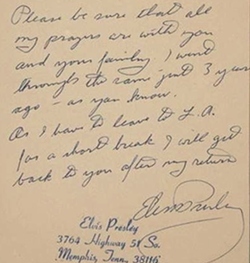 Please be sure that all
my prayers are with you
and your family. I went
through the same just 3 years
ago - as you know.
As I have to leave to L.A.
for a short break I will get
back to you after my return
Elvis Presley
Elvis Presley
3764 Highway 51 So.
Memphis, Tenn. 38116